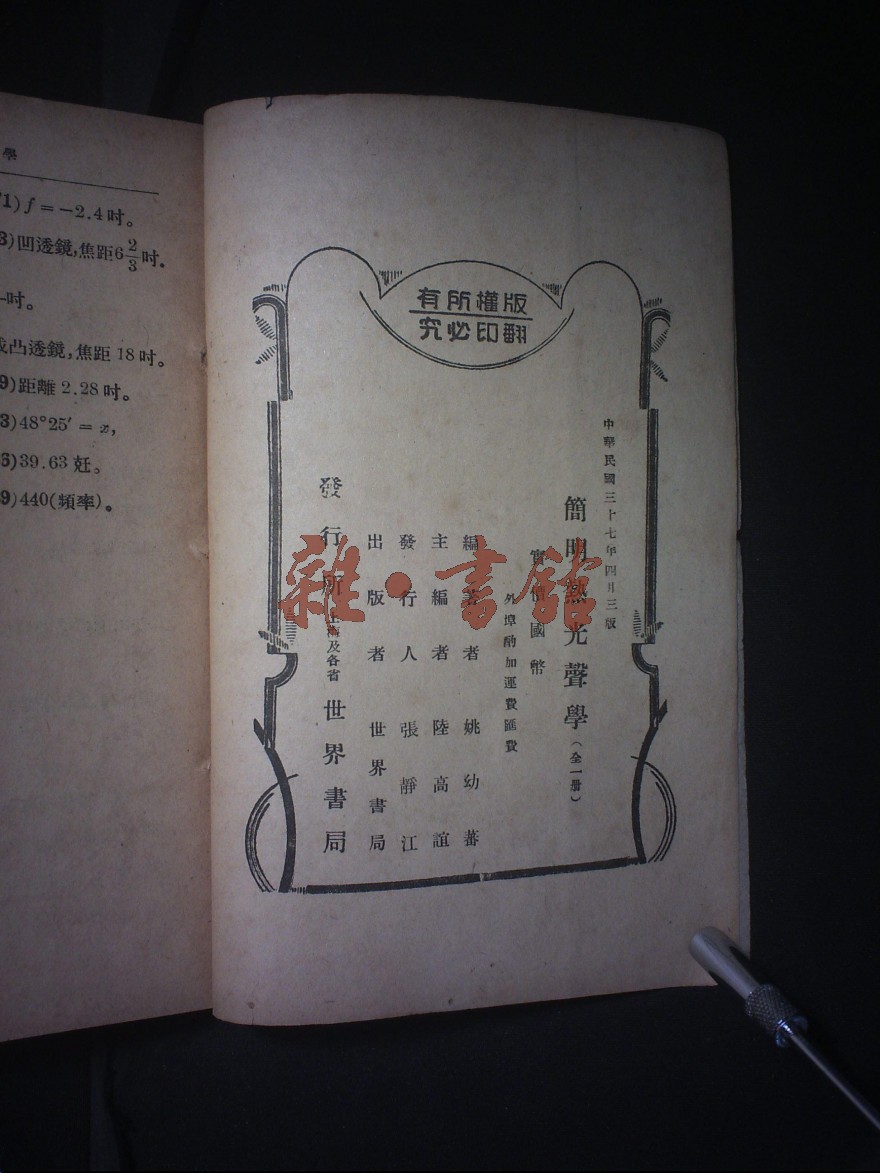 學
1)f=-2.4吋。
3)凹透鏡,焦距6 2/3 吋。
吋。
凸透鏡,焦距 18 吋。
9)距離 2.28 吋。
3)48°25′ = x,
6)39.63 兙。
9)440(頻率)。
版權所有
翻印必究
中華民國三十七年四月三版
簡明熱光聲學(全一册)
實價國幣
外埠酌加運費匯費
編著者 姚幼蕃
主編者 陸高誼
發行人 張靜江
出版者 世界書局
發行所 上海及各省 世界書局
雜·書館